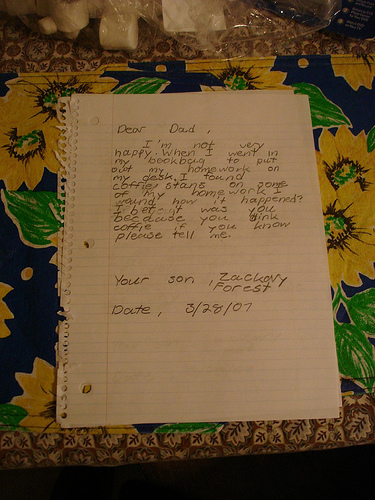 Dear Dad,
I'm not very
happy. When I went in
my bookbag to put
out my homework on
my desk. I found
coffie stans on some
of my homework I
found how it happened?
I bet it was you
because you dink
coffie if you know
please tell me.
Your son, Zackary
Forest
Date, 3/28/07